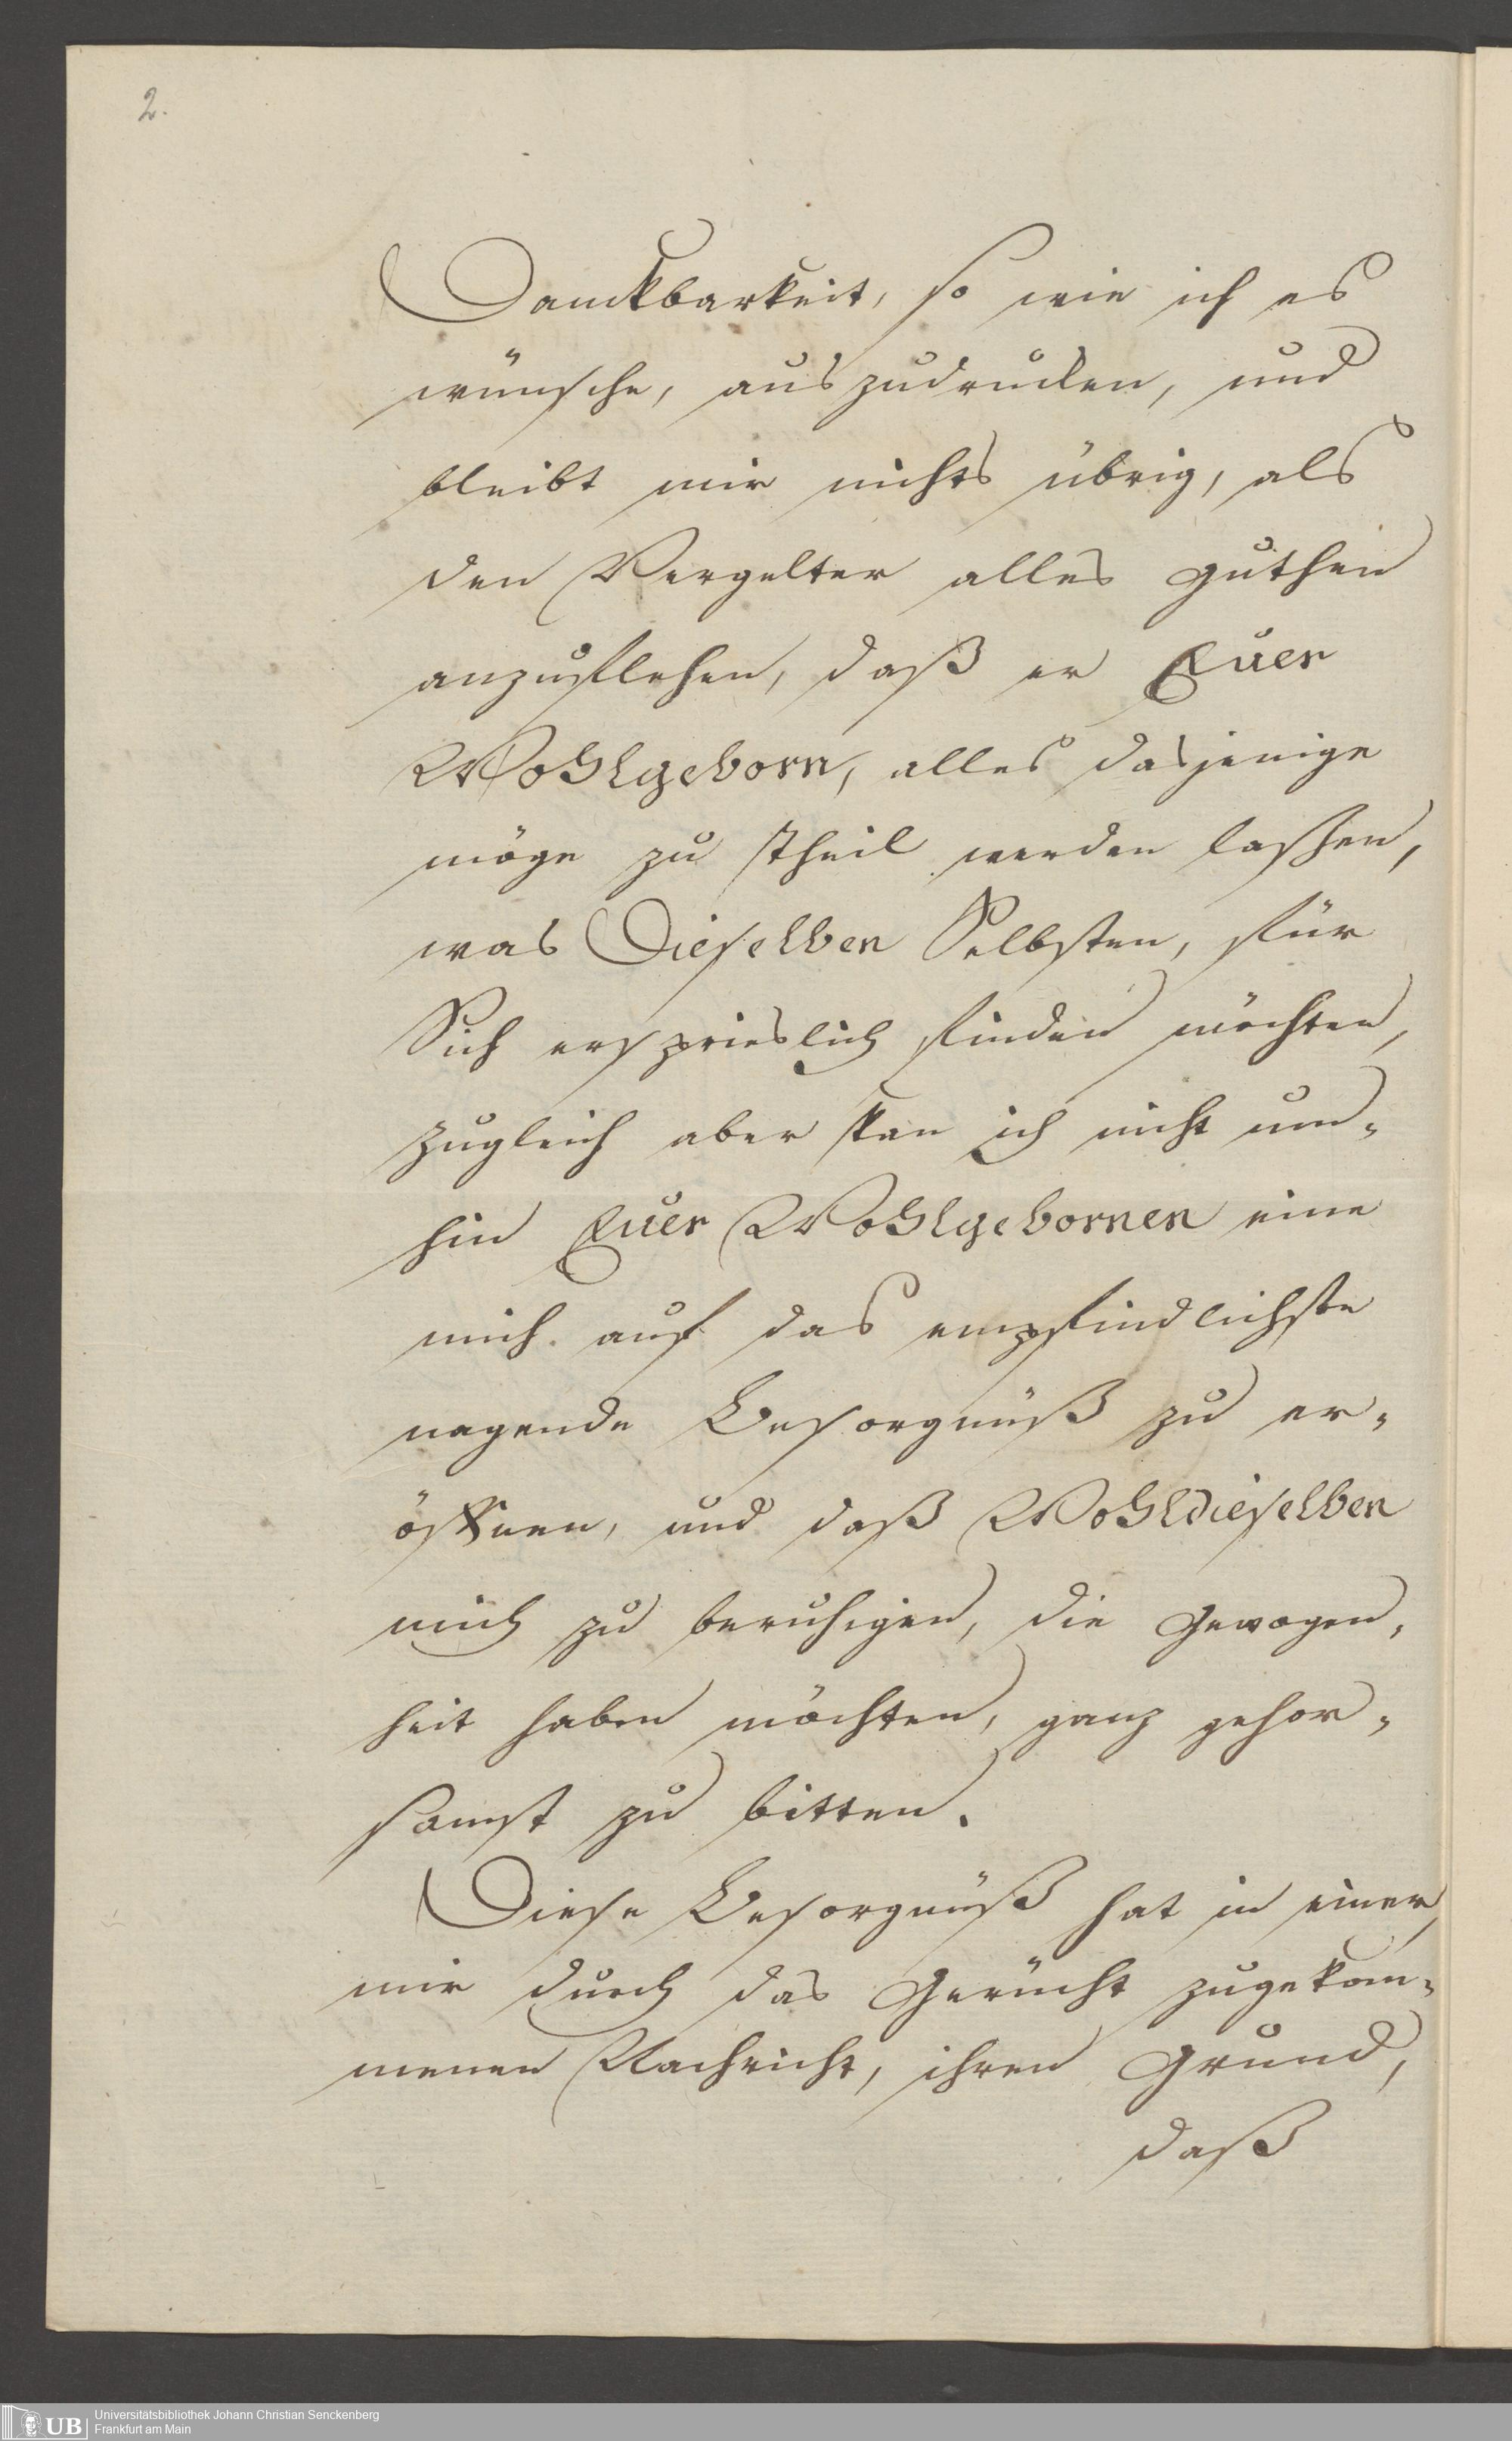 2.
Danckbarkeit, so wie ich es
wünsche, auszudrucken, und
bleibt mir nichts übrig, als
den Vergelter alles guthen
anzuflehen, daß er Euer
Wohlgeborn, alles dasjenige
möge zu theil werden laßen,
was Dieselben Selbsten, für
Sich ersprieslich finden möchten,
zugleich aber kan ich nicht um-
hin Euer Wohlgebornen eine
mich auf das empfindlichste
nagende Besorgnüß zu er-
öffnen, und daß Wohldieselben
mich zu beruhigen, die Gewogen-
heit haben möchten, ganz gehor-
samst zu bitten.
Diese Besorgnüß hat in einer,
mir durch das Gerücht zugekom-
menen Nachricht, ihren Grund,
daß
UB Universitätsbibliothek Johann Christian Senckenberg
Frankfurt am Main